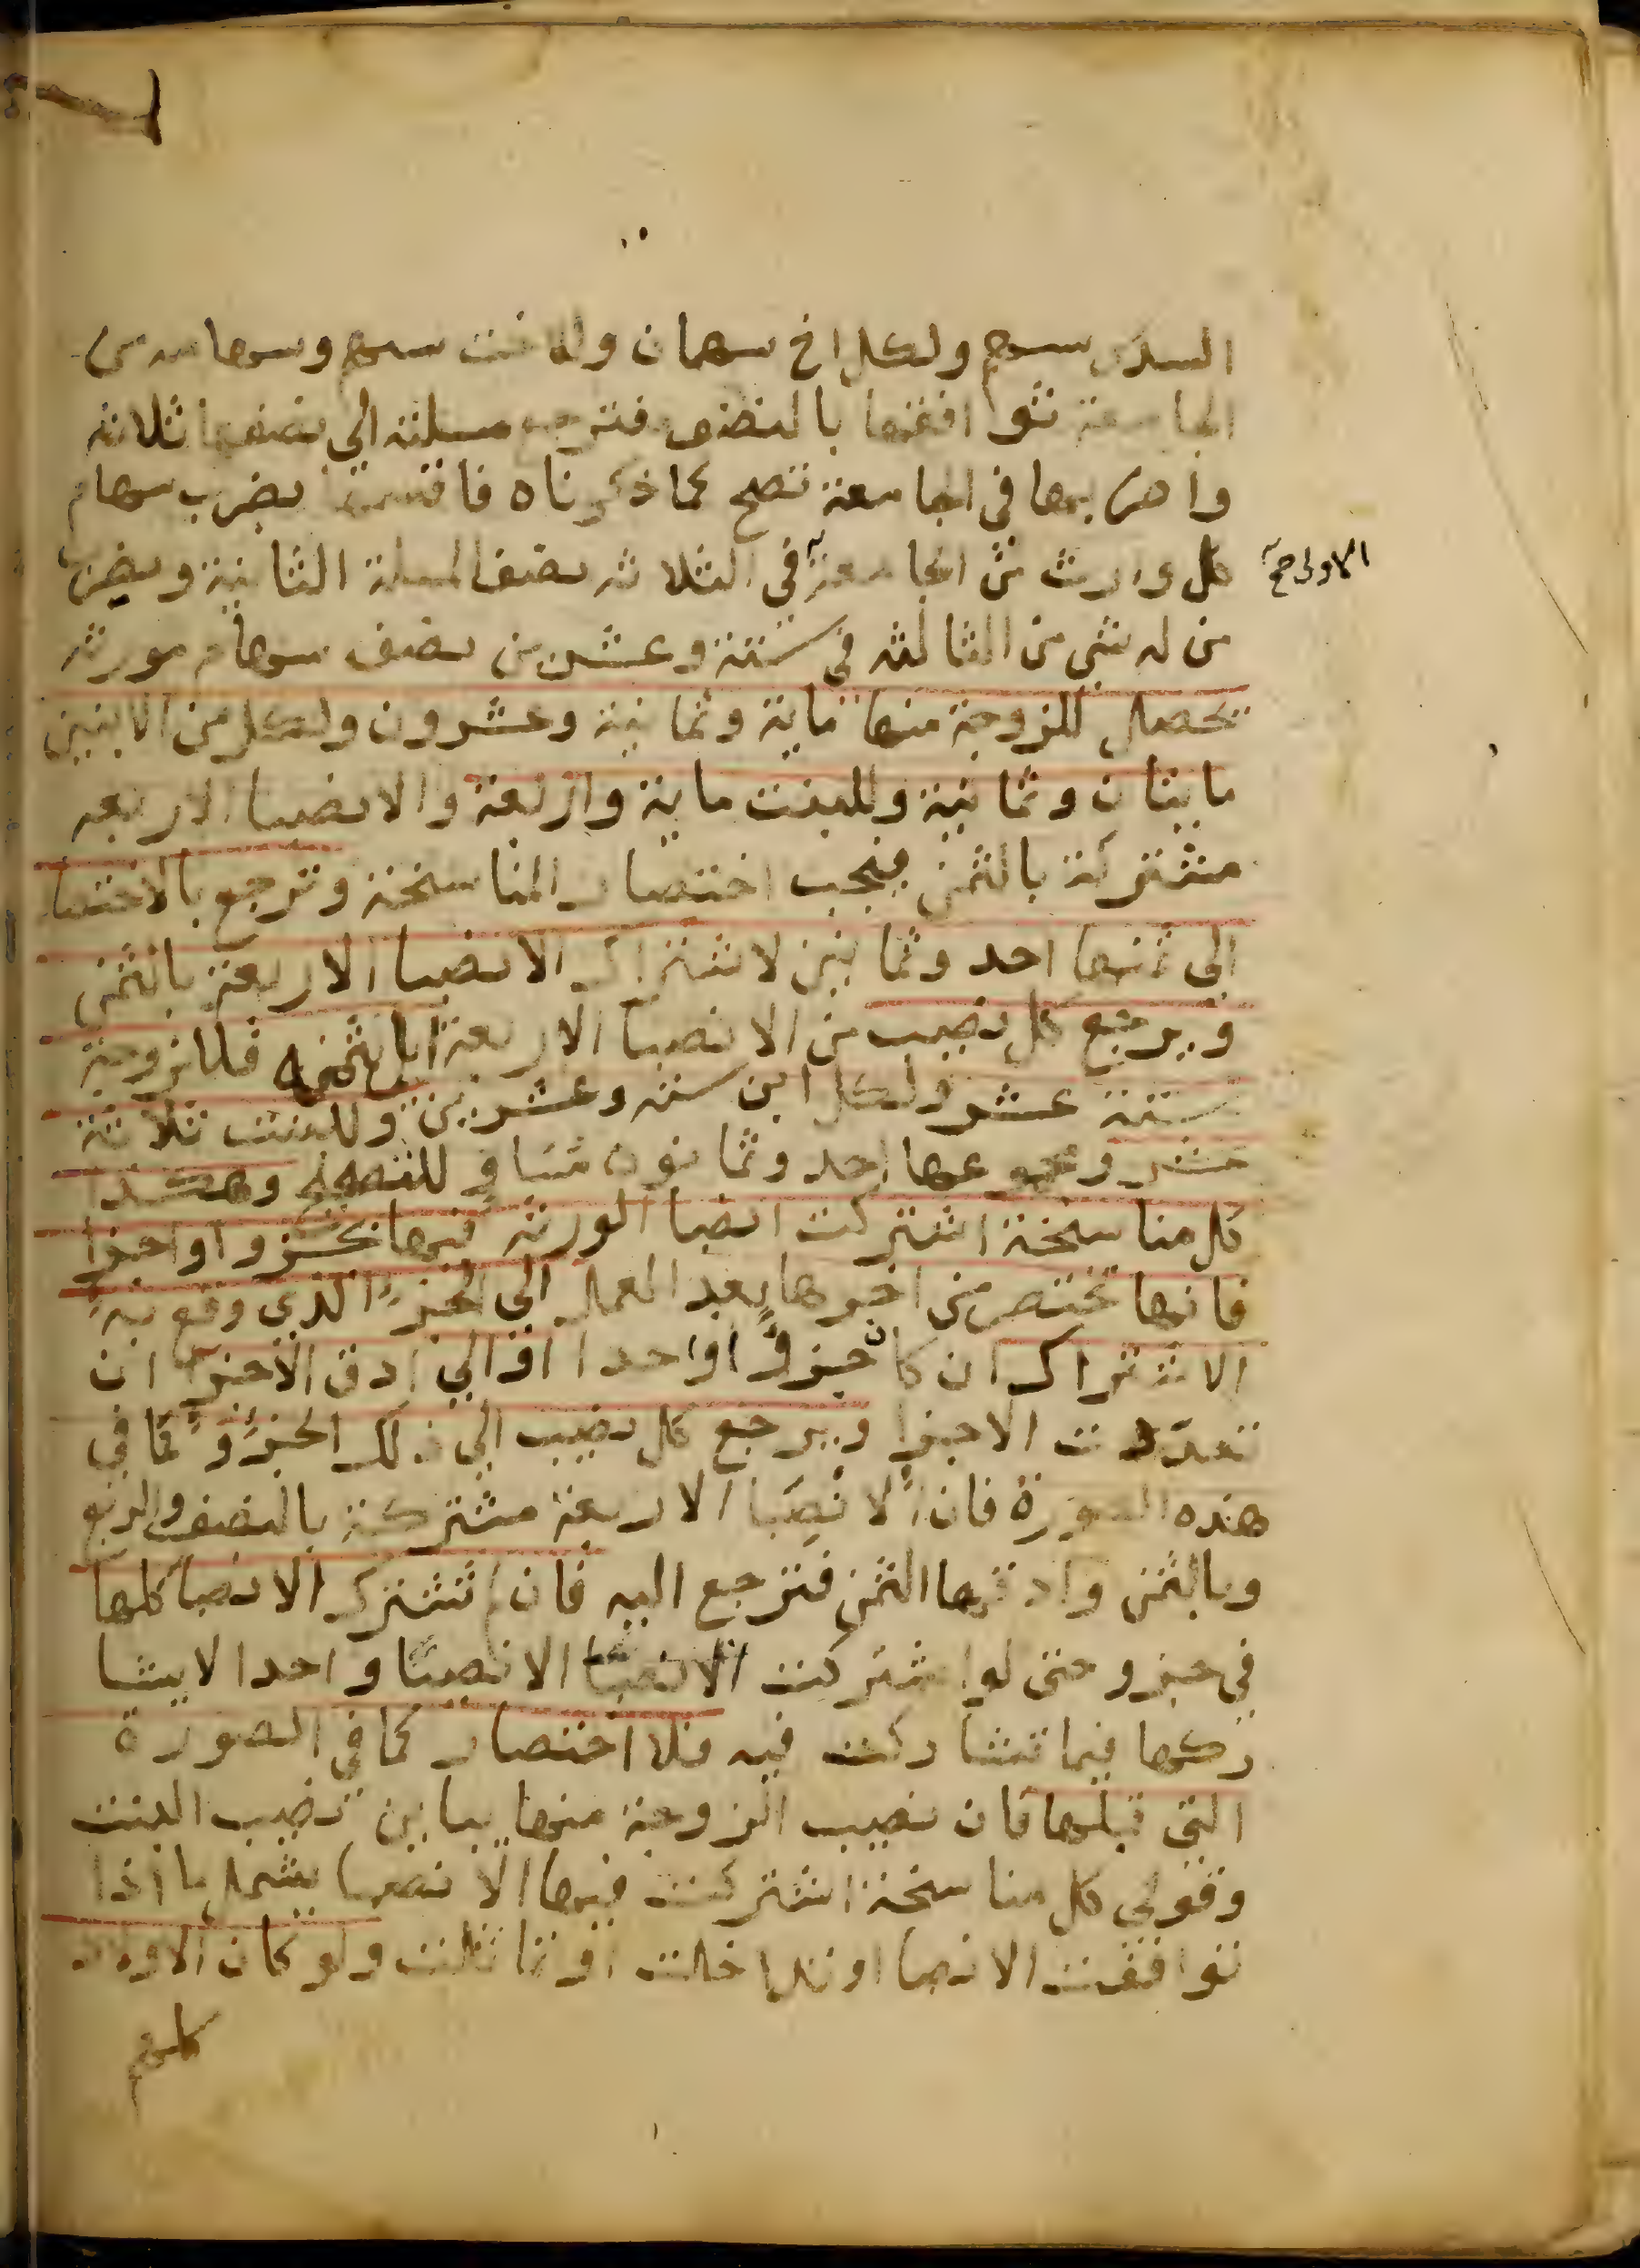 السدس سهم ولكل اخ سهمان وللاخت سهم وسهامه من
الجامعة توافقها بالنصف فترجع مسلته الى نصفها ثلاثه
واضربها في الجامعة تصح كما ذكرناه فاقسمها بضرب سهام
كل وارث من الجامعة في الثلاثه نصف المسلة الثانية وبضرب
الاولى صح
من له شي من الثالثه في ستة وعشرين نصف سهام مورثه
يحصل للزوجة منها ماية وثمانية وعشرون ولكل من الابنين
مايتان وثمانية وللبنت ماية واربعة والانصبا الاربعه
مشتركة بالثمن فيجب اختصار المناسخة وترجع بالاختصار
الى ثمنها احد وثمانين لاشتراك الانصبا الاربعة بالثمن
ويرجع كل نصيب من الانصبا الاربعة الى ثمنه فللزوجة
ستة عشر ولكل ابن سته وعشرين وللبنت ثلاثة
عشر ومجموعها احد وثمانون مساو للتصحيح وهكذا
كل مناسخة اشتركت انصبا الورثه فيها بجزو او اجزا
فانها تختصر من اخرها بعد العمل الى الجزء الذي وقع به
الاشتراك ان كان جزوا واحدا او الى ادق الاجزا ان
تعددت الاجزا ويرجع كل نصيب الى ذلك الجزو كما في
هذه الصورة فان الانصبا الاربعة مشتركة بالنصف والربع
وبالثمن وادقها الثمن فترجع اليه فان لم تشترك الانصبا كلها
في جزو حتى لو اشتركت الانصبا الا نصيبا واحدا لا يشا
ركها فيما تشاركت فيه فلا اختصار كما في الصورة
التي قبلها فان نصيب الزوجة منها يباين نصيب البنت
وقولي كل مناسخة اشتركت فيها الانصبا يشمل ما اذا
توافقت الانصبا او تداخلت او تماثلت ولو كان الاولاد
كلهم